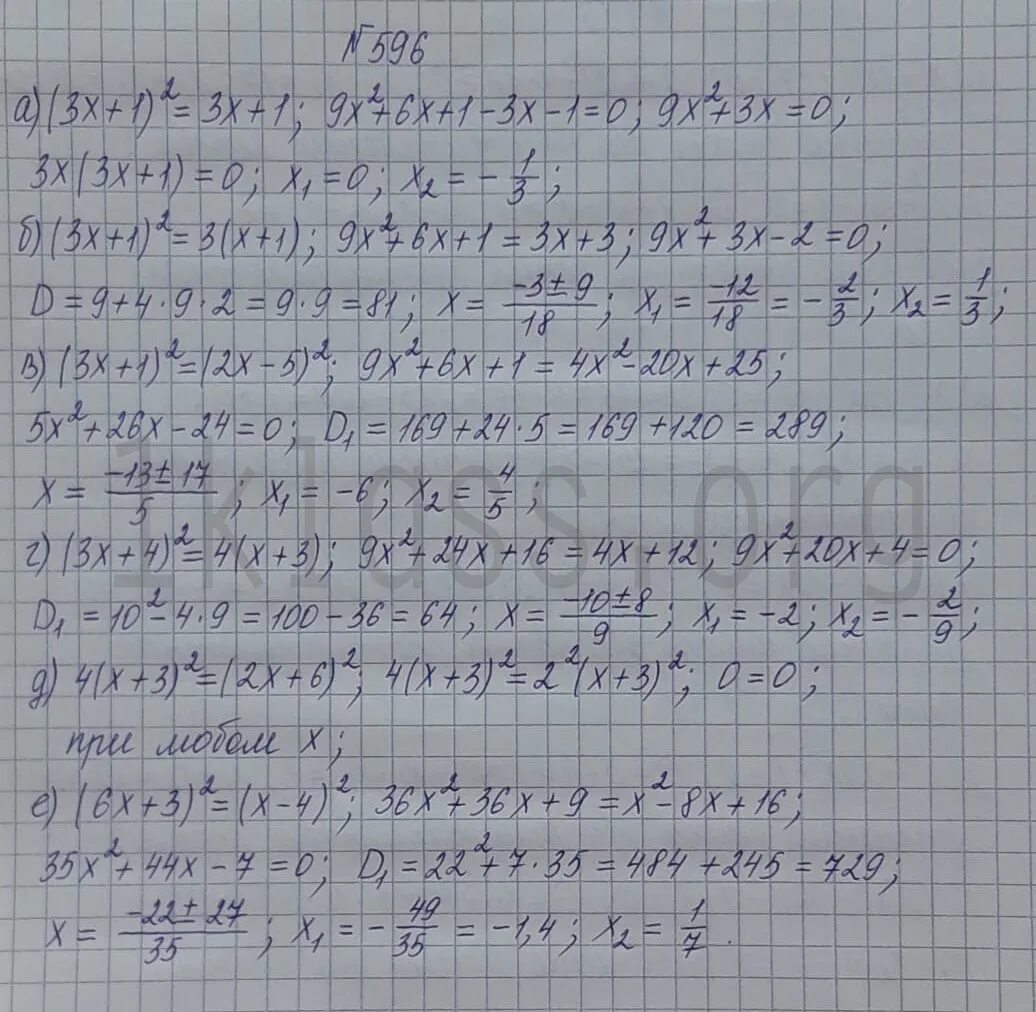 №596
а) (3x+1)² = 3x+1; 9x²+6x+1-3x-1=0; 9x²+3x=0;
3x(3x+1)=0; x₁=0; x₂ = -1/3;
б) (3x+1)² = 3(x+1); 9x²+6x+1 = 3x+3; 9x²+3x-2=0;
D = 9+4·9·2 = 9·9 = 81; x = (-3±9)/18; x₁ = -12/18 = -2/3; x₂ = 1/3;
в) (3x+1)² = (2x-5)²; 9x²+6x+1 = 4x²-20x+25;
5x²+26x-24=0; D₁ = 169+24·5 = 169+120 = 289;
x = (-13±17)/5; x₁ = -6; x₂ = 4/5;
1klass.org
г) (3x+4)² = 4(x+3); 9x²+24x+16 = 4x+12; 9x²+20x+4=0;
D₁ = 10²-4·9 = 100-36 = 64; x = (-10±8)/9; x₁ = -2; x₂ = -2/9;
д) 4(x+3)² = (2x+6)²; 4(x+3)² = 2²(x+3)²; 0=0;
при любом x;
е) (6x+3)² = (x-4)²; 36x²+36x+9 = x²-8x+16;
35x²+44x-7=0; D₁ = 22²+7·35 = 484+245 = 729;
x = (-22±27)/35; x₁ = -49/35 = -1,4; x₂ = 1/7.